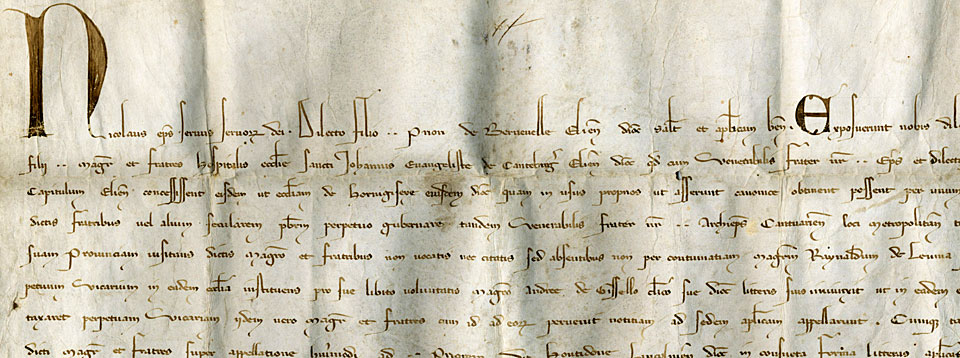 Nicolaus eps servus servorz dei. Dilecto filio .. Priori de Bernewelle Elien dioc salt et aplicam ben. Exposuerunt nobis
filii .. magr et fratres hospitalis ecclie sancti Johannis Evangeliste de Cantebrig Elien dioc qd cum Venerabilis frater nr .. Eps et
Capitulum Elien concessissent eisdem ut eccliam de Horningeseye eiusdem dioc quam in usus proprios ut asserunt canonice obtinent possent per
dictis fratribus vel alium secularem pbrm perpetuo gubernare tandem Venerabilis frater nr .. Archieps Cantuarien loci metropolitan
suam Provinciam visitans dictis magro et fratribus non vocatis nec citatis sed absentibus non per contumatiam magrum Raynaldum de
petuum Vicarium in eadem ecclia instituens pro sue libito voluntatis magro Andree de clico sue dioc litteris suis iniunxit ut in eadem
taxaret perpetuam Vicariam iidem vero magr et fratres cum id ad eorz pervenit notitiam ad sedem aplicam appellarunt. Cumque
dicti magr et fratres super appellatione huiusmodi ad Priorem de dioc in consueta forma litteras